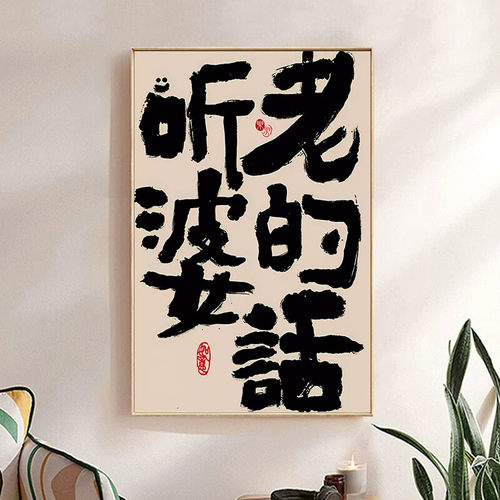 听老
婆的
话